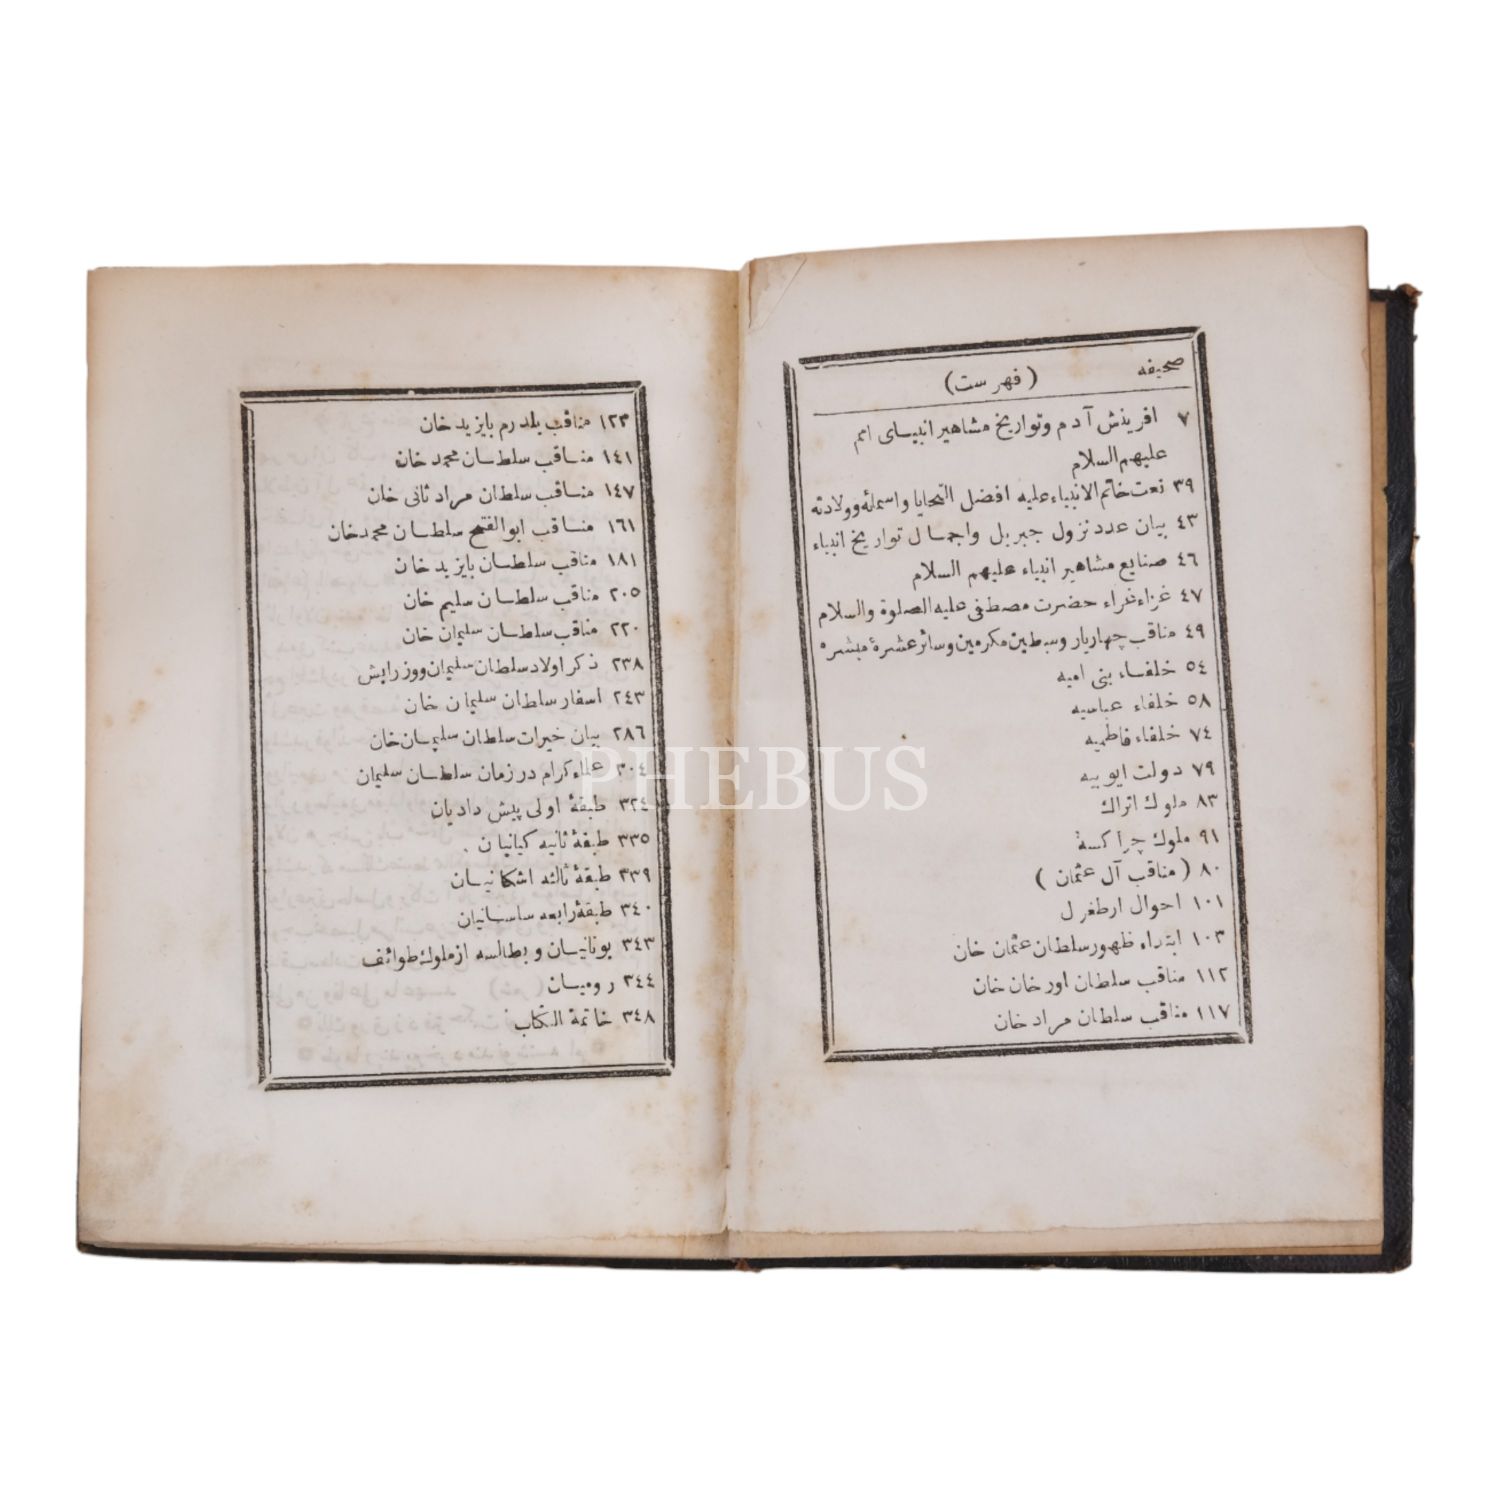 صحيفه
(فهرست)
٧ افرينش آدم وتواريخ مشاهير انبياى امم
عليهم السلام
٣٩ نعت خاتم الانبياء عليه افضل التحايا واسمائه وولادته
٤٣ بيان عدد نزول جبريل واجمال تواريخ انبياء
٤٦ صنايع مشاهير انبياء عليهم السلام
٤٧ غزاء غراء حضرت مصطفى عليه الصلوة والسلام
٤٩ مناقب چهاريار وسبطين مكرمين وسائر عشرۀ مبشره
٥٤ خلفاء بنى اميه
٥٨ خلفاء عباسيه
٧٤ خلفاء فاطميه
٧٩ دولت ايوبيه
٨٣ ملوك اتراك
٩١ ملوك چراكسة
٨٠ (مناقب آل عثمان)
١٠١ احوال ارطغرل
١٠٣ ابتداء ظهور سلطان عثمان خان
١١٢ مناقب سلطان اورخان خان
١١٧ مناقب سلطان مراد خان
١٢٣ مناقب يلدرم بايزيد خان
١٤١ مناقب سلطان محمد خان
١٤٧ مناقب سلطان مراد ثانى خان
١٦١ مناقب ابوالفتح سلطان محمد خان
١٨١ مناقب سلطان بايزيد خان
٢٠٥ مناقب سلطان سليم خان
٢٢٠ مناقب سلطان سليمان خان
٢٣٨ ذكر اولاد سلطان سليمان ووزرايش
٢٤٣ اسفار سلطان سليمان خان
٢٨٦ بيان خيرات سلطان سليمان خان
٣٠٤ علماء كرام در زمان سلطان سليمان
٣٢٤ طبقۀ اولى پيش داديان
٣٣٥ طبقۀ ثانيه كيانيان .
٣٣٩ طبقۀ ثالثه اشكانيان
٣٤٠ طبقۀ رابعه ساسانيان
٣٤٣ يونانيان وبطالسه از ملوك طوائف
٣٤٤ روميان
٣٤٨ خاتمة الكتاب
PHEBUS